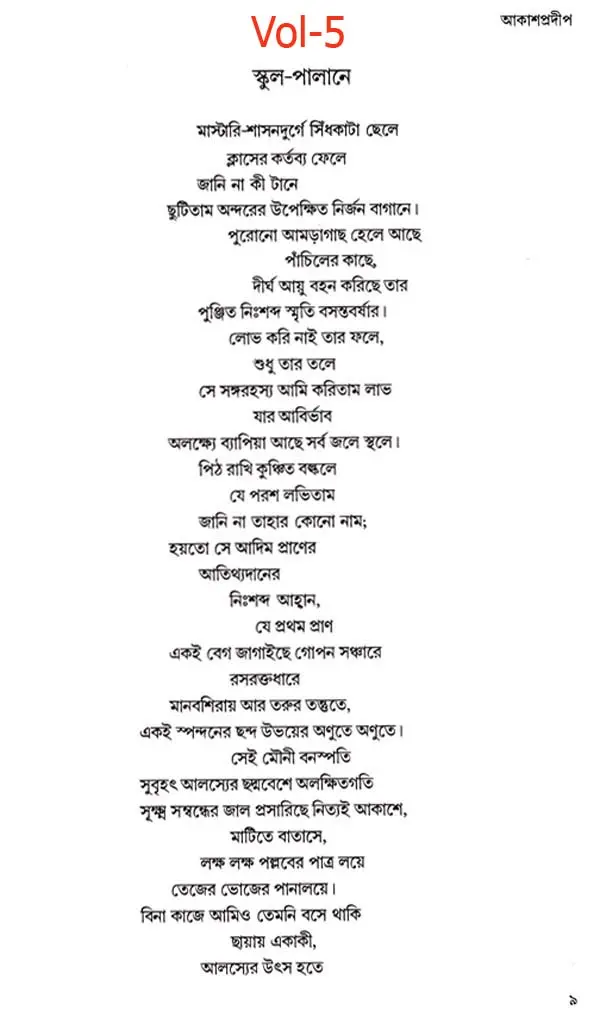 আকাশপ্রদীপ
Vol-5
স্কুল-পালানে
মাস্টারি-শাসনদুর্গে সিঁধকাটা ছেলে
ক্লাসের কর্তব্য ফেলে
জানি না কী টানে
ছুটিতাম অন্দরের উপেক্ষিত নির্জন বাগানে।
পুরোনো আমড়াগাছ হেলে আছে
পাঁচিলের কাছে,
দীর্ঘ আয়ু বহন করিছে তার
পুঞ্জিত নিঃশব্দ স্মৃতি বসন্তবর্ষার।
লোভ করি নাই তার ফলে,
শুধু তার তলে
সে সঙ্গরহস্য আমি করিতাম লাভ
যার আবির্ভাব
অলক্ষ্যে ব্যাপিয়া আছে সর্ব জলে স্থলে।
পিঠ রাখি কুঞ্চিত বল্কলে
যে পরশ লভিতাম
জানি না তাহার কোনো নাম;
হয়তো সে আদিম প্রাণের
আতিথ্যদানের
নিঃশব্দ আহ্বান,
যে প্রথম প্রাণ
একই বেগ জাগাইছে গোপন সঞ্চারে
রসরক্তধারে
মানবশিরায় আর তরুর তন্তুতে,
একই স্পন্দনের ছন্দ উভয়ের অণুতে অণুতে।
সেই মৌনী বনস্পতি
সুবৃহৎ আলস্যের ছদ্মবেশে অলক্ষিতগতি
সূক্ষ্ম সম্বন্ধের জাল প্রসারিছে নিত্যই আকাশে,
মাটিতে বাতাসে,
লক্ষ লক্ষ পল্লবের পাত্র লয়ে
তেজের ভোজের পানালয়ে।
বিনা কাজে আমিও তেমনি বসে থাকি
ছায়ায় একাকী,
আলস্যের উৎস হতে
৯